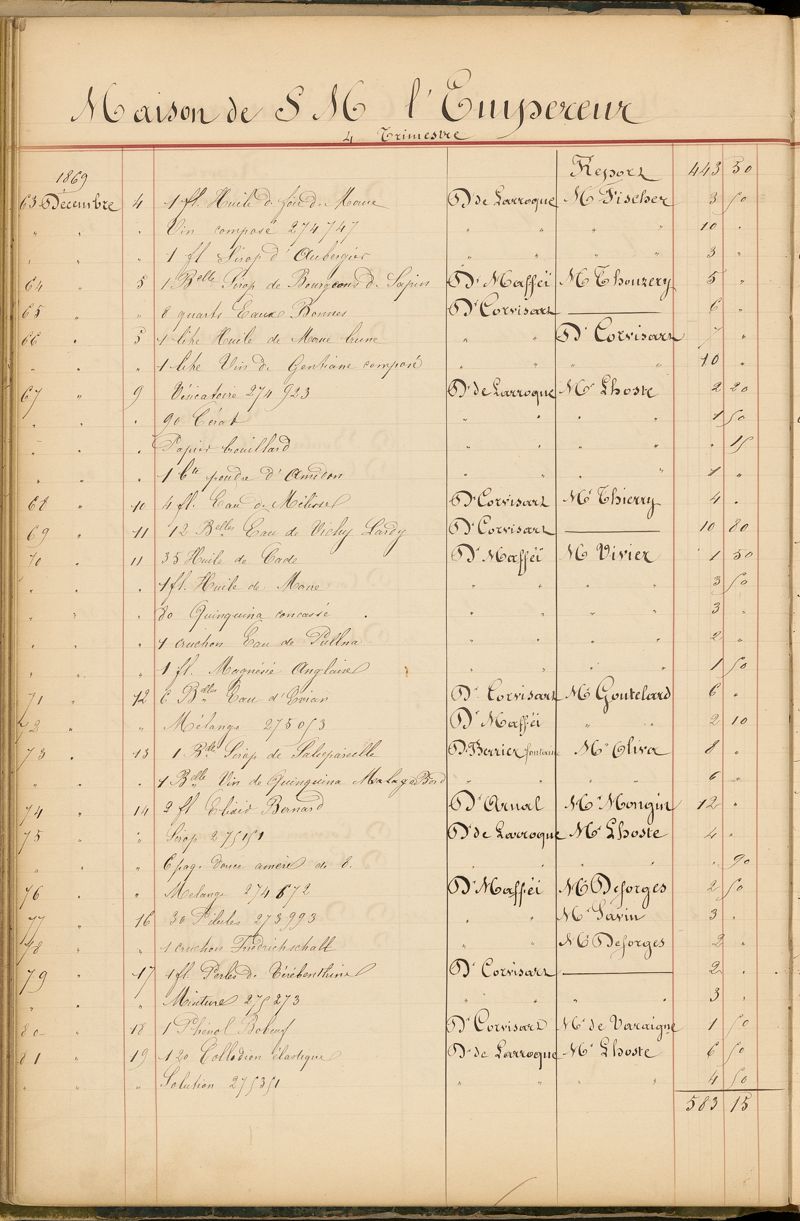 Maison de S M l'Empereur
4 Trimestre
1869 Report 443 50
63 Décembre 4 1 fl. Huile d. foie d. Morue Dr de Larroque Mr Fischer 3 50
" " " Vin composé 274747 " " " " 10 "
" " " 1 fl Sirop d'Aubergier " " " " 3 "
64 " 5 1 Belle Sirop de Bourgeons d. Sapin Dr Maffëi Mr Thouzery 5 "
65 " " 8 quarts Eaux Bonnes Dr Corvisart —— 6 "
66 " 5 1 litre Huile de Morue brune " " Dr Corvisart 7 "
" " " 1 litre Vin de Gentiane composé " " " " 10 "
67 " 9 Vésicatoire 274923 Dr de Larroque Mr Lhoste 2 20
" " " 90 Cérat " " " " 1 50
" " " Papier brouillard " " " " " 15
" " " 1 bte poudre d'Amidon " " " " 1 "
68 " 10 4 fl. Eau d. Mélisse Dr Corvisart Mr Thierry 4 "
69 " 11 12 Belles Eau de Vichy Lardy Dr Corvisart —— 10 80
70 " 11 35 Huile de Cade Dr Maffëi Mr Vivier 1 50
" " " 1 fl. Huile de Morue " " " " 3 50
" " " 80 Quinquina concassé " " " " 3 "
" " " 1 cruchon Eau de Pullna " " " " 2 "
" " " 1 fl. Magnésie Anglaise " " " " 1 50
71 " 12 6 Belles Eau d'Evian Dr Corvisart Mr Goutelard 6 "
72 " " Mélange 275053 Dr Maffëi " " 2 10
73 " 13 1 Belle Sirop de Salsepareille Dr Berrier fontaine Mr Oliva 8 "
" " " 1 Belle Vin de Quinquina Malaga Bord " " " " 6 "
74 " 14 2 fl Elixir Bernard Dr Arnal Mr Mongin 12 "
75 " " Sirop 275151 Dr de Larroque Mr Lhoste 4 "
" " " 6 paq. Douce amère de 8. " " " " " 90
76 " " Mélange 274872 Dr Maffëi Mr Desorges 2 50
77 " 16 30 Pilules 273993 " " Mr Savin 3 "
78 " " 1 cruchon Friedrichschall " " Mr Desorges 2 "
79 " 17 1 fl Perles d. Térébenthine Dr Corvisart —— 2 "
" " " Mixture 275273 " " " " 3 "
80 " 18 1 Phénol Boboeuf Dr Corvisart Mr de Varaigne 1 50
81 " 19 120 Collodion élastique Dr de Larroque Mr Lhoste 6 50
" " " Solution 275351 " " " " 4 50
583 15